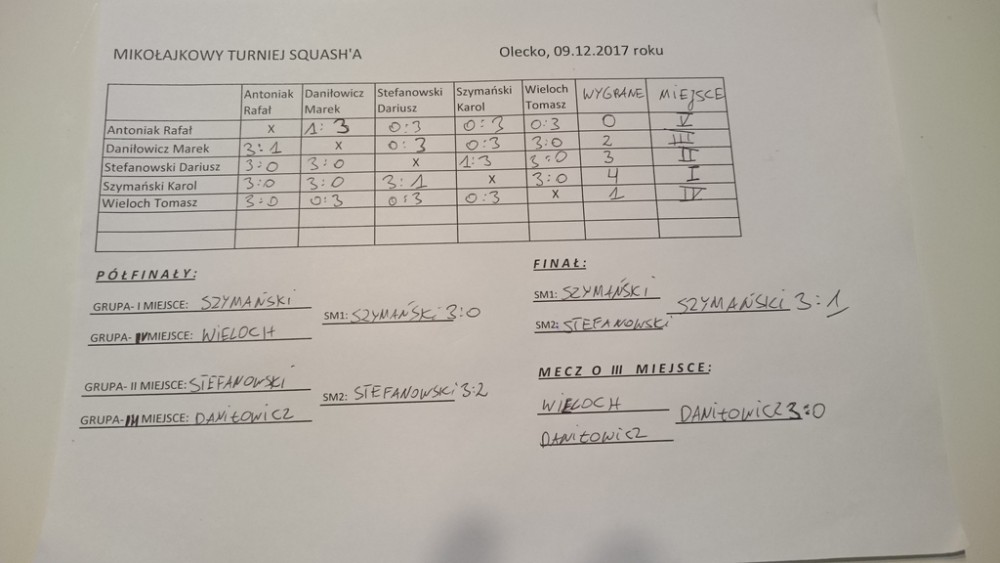 MIKOŁAJKOWY TURNIEJ SQUASH'A Olecko, 09.12.2017 roku
Antoniak Rafał Daniłowicz Marek Stefanowski Dariusz Szymański Karol Wieloch Tomasz WYGRANE MIEJSCE
Antoniak Rafał x 1:3 0:3 0:3 0:3 0 V
Daniłowicz Marek 3:1 x 0:3 0:3 3:0 2 III
Stefanowski Dariusz 3:0 3:0 x 1:3 3:0 3 II
Szymański Karol 3:0 3:0 3:1 x 3:0 4 I
Wieloch Tomasz 3:0 0:3 0:3 0:3 x 1 IV
PÓŁFINAŁY:
GRUPA- I MIEJSCE: SZYMAŃSKI
SM1: SZYMAŃSKI 3:0
GRUPA- IV MIEJSCE: WIELOCH
GRUPA- II MIEJSCE: STEFANOWSKI
SM2: STEFANOWSKI 3:2
GRUPA- III MIEJSCE: DANIŁOWICZ
FINAŁ:
SM1: SZYMAŃSKI
SZYMAŃSKI 3:1
SM2: STEFANOWSKI
MECZ O III MIEJSCE:
WIELOCH
DANIŁOWICZ 3:0
DANIŁOWICZ